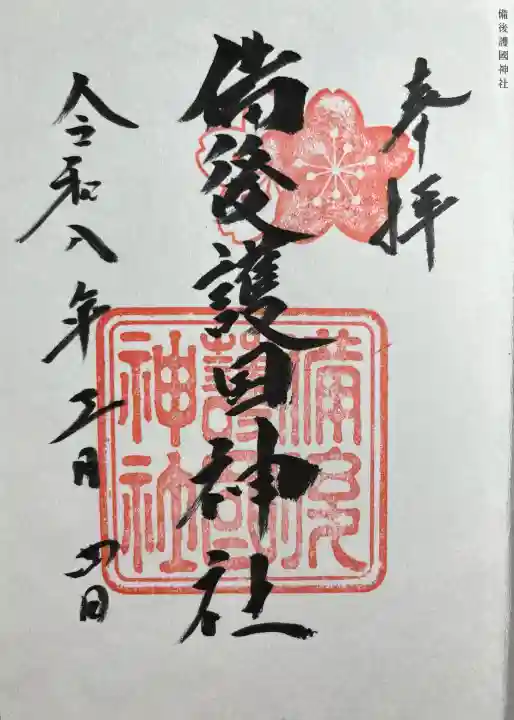 備後護國神社
奉拝
備後護国神社
令和八年五月 日
備後
護國
神社